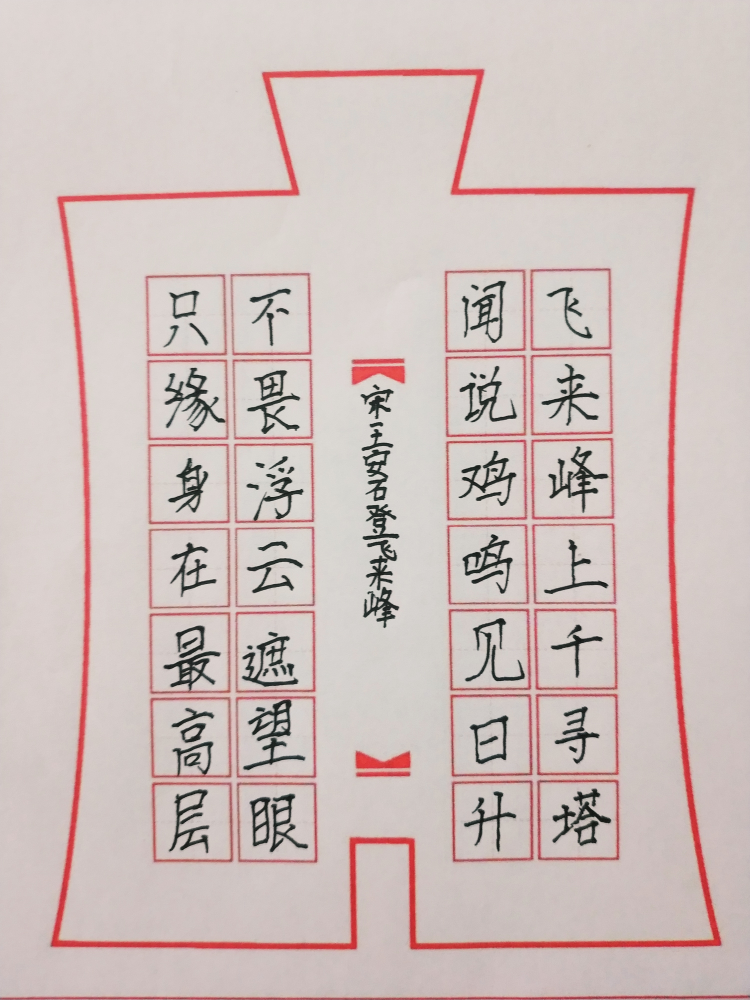 飞来峰上千寻塔
闻说鸡鸣见日升
宋王安石登飞来峰
不畏浮云遮望眼
只缘身在最高层